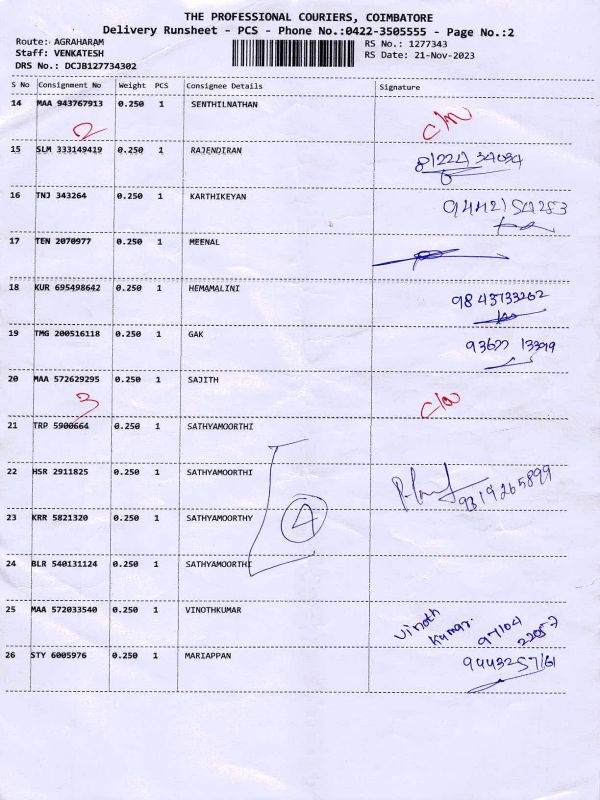 THE PROFESSIONAL COURIERS, COIMBATORE
Delivery Runsheet - PCS - Phone No.:0422-3505555 - Page No.:2
Route: AGRAHARAM
Staff: VENKATESH
DRS No.: DCJB127734302
RS No.: 1277343
RS Date: 21-Nov-2023
S No Consignment No Weight PCS Consignee Details Signature
14 MAA 943767913 0.250 1 SENTHILNATHAN
2
15 SLM 333149419 0.250 1 RAJENDIRAN
16 TNJ 343264 0.250 1 KARTHIKEYAN
17 TEN 2070977 0.250 1 MEENAL
18 KUR 695498642 0.250 1 HEMAMALINI
9843733262
19 TMG 200516118 0.250 1 GAK
20 MAA 572629295 0.250 1 SAJITH
3
21 TRP 5900664 0.250 1 SATHYAMOORTHI
22 HSR 2911825 0.250 1 SATHYAMOORTHI
9319265899
23 KRR 5821320 0.250 1 SATHYAMOORTHY
4
24 BLR 540131124 0.250 1 SATHYAMOORTHI
25 MAA 572033540 0.250 1 VINOTHKUMAR
Vinoth
Kumar. 97104
22057
26 STY 6005976 0.250 1 MARIAPPAN
9443257161